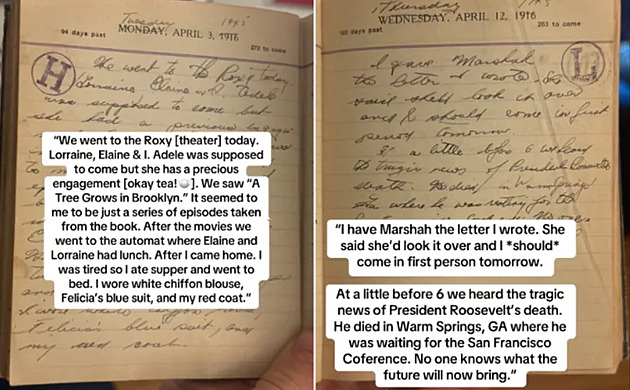 Tuesday 1945
94 days past MONDAY, APRIL 3, 1916 272 to come
H
We went to the Roxy today
Lorraine, Elaine & I. Adele
was supposed to come but
she had a previous
“We went to the Roxy [theater] today.
Lorraine, Elaine & I. Adele was supposed
to come but she has a precious
engagement [okay tea!🍵]. We saw “A
Tree Grows in Brooklyn.” It seemed to
me to be just a series of episodes taken
from the book. After the movies we
went to the automat where Elaine and
Lorraine had lunch. After I came home. I
was tired so I ate supper and went to
bed. I wore white chiffon blouse,
Felicia’s blue suit, and my red coat.”
Felicia's blue suit, and
my red coat.
Thursday 1945
WEDNESDAY, APRIL 12, 1916
days past 263 to come
I gave Marshah
the letter I wrote. She
said she'd look it over
and I should come in first
period tomorrow.
At a little before 6 we heard
the tragic news of President Roosevelt's
death. He died in Warm Springs
Ga where he was waiting for the
“I have Marshah the letter I wrote. She
said she’d look it over and I *should*
come in first person tomorrow.
At a little before 6 we heard the tragic
news of President Roosevelt’s death.
He died in Warm Springs, GA where he
was waiting for the San Francisco
Coference. No one knows what the
future will now bring.”